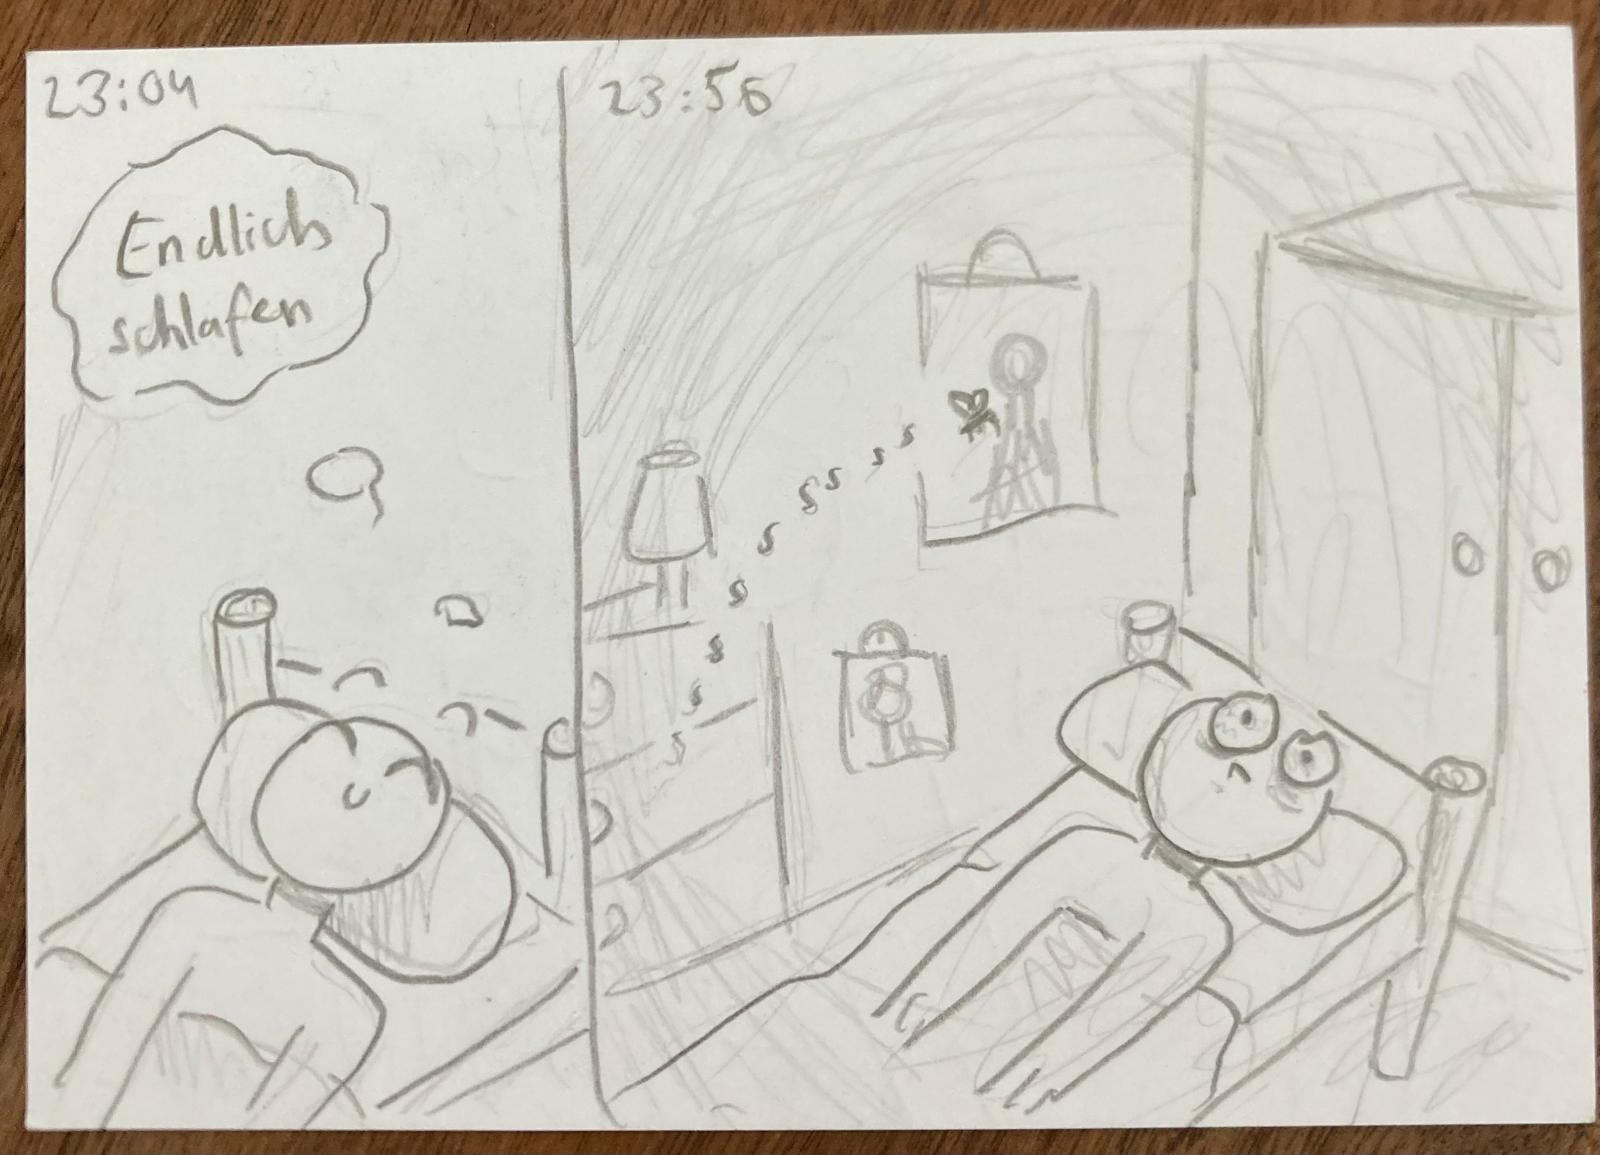 23:04
Endlich
schlafen
23:56
s
s
s
s
s
s
s
s
s
s